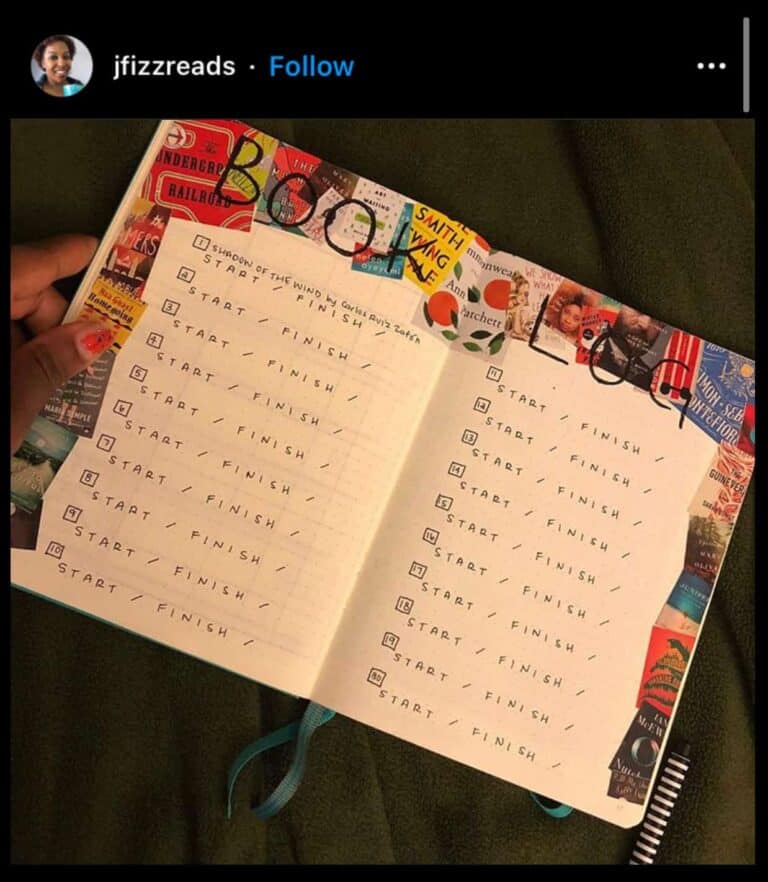 jfizzreads · Follow
BOOK LOG
UNDERGROUND
RAILROAD
THE
SMITH
WING
Ann
Patchett
WE SHOW
WHAT
Homegoing
oyeyemi
WAITING
GUINEVERE
1 SHADOW OF THE WIND by Carlos Ruiz Zafón
START / FINISH /
2
START / FINISH /
3
START / FINISH /
4
START / FINISH /
5
START / FINISH /
6
START / FINISH /
7
START / FINISH /
8
START / FINISH /
9
START / FINISH /
10
START / FINISH /
11
START / FINISH /
12
START / FINISH /
13
START / FINISH /
14
START / FINISH /
15
START / FINISH /
16
START / FINISH /
17
START / FINISH /
18
START / FINISH /
19
START / FINISH /
20
START / FINISH /